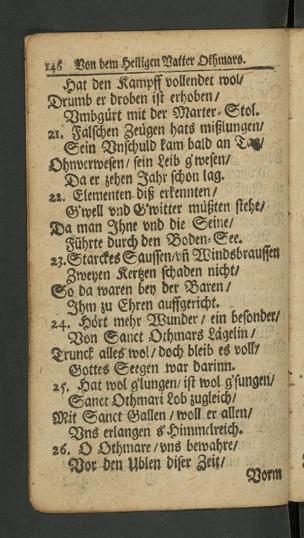 146 Von dem Heiligen Vatter Othmars.
Hat den Kampff vollendet wol/
Drumb er droben ist erhoben/
Vmbgürt mit der Marter-Stol.
21. Falschen Zeügen hats mißlungen/
Sein Vnschuld kam bald an Tag/
Ohnverwesen/ sein Leib g'wesen/
Da er zehen Jahr schon lag.
22. Elementen diß erkennten/
G'well vnd G'witter müßten stehe/
Da man Ihne vnd die Seine/
Führte durch den Boden-See.
23. Starckes Saussen/ vñ Windsbraussen
Zweyen Kertzen schaden nicht/
So da waren bey der Baren/
Ihm zu Ehren auffgericht.
24. Hört mehr Wunder/ ein besonder/
Von Sanct Othmars Lägelin/
Trunck alles wol/ doch bleib es voll/
Gottes Seegen war darinn.
25. Hat wol g'lungen/ ist wol g'sungen/
Sanct Othmari Lob zugleich/
Mit Sanct Gallen/ woll er allen/
Vns erlangen s'Himmelreich.
26. O Othmare/ vns bewahre/
Vor den Ublen diser Zeit/
Vorm